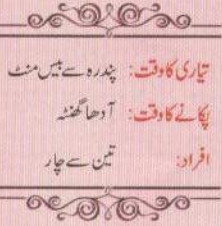 تیاری کا وقت: پندرہ سے بیس منٹ
پکانے کا وقت: آدھا گھنٹہ
افراد: تین سے چار